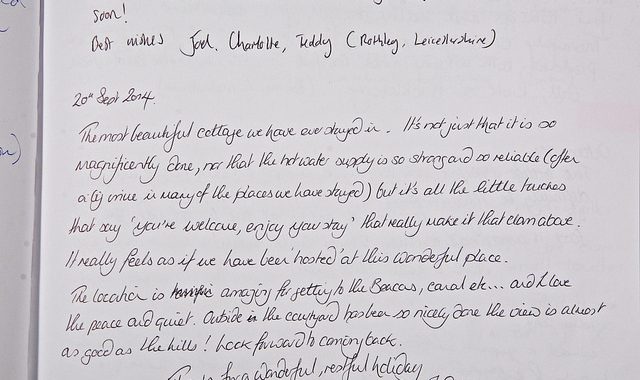 soon!
Best wishes Joel, Charlotte, Teddy (Rothley, Leicestershire)
20th Sept 2014.
The most beautiful cottage we have ever stayed in. It's not just that it is so
magnificently done, nor that the hot water supply is so strong and so reliable (often
a big in many of the places we have stayed) but it's all the little touches
that say 'you're welcome, enjoy your stay' that really make it that class above.
It really feels as if we have been 'hosted' at this wonderful place.
The location is terrific amazing for getting to the Beacons, canal etc... and I love
the peace and quiet. Outside in the courtyard has been so nicely done the view is almost
as good as the hills! Look forward to coming back.
for a wonderful, restful holiday